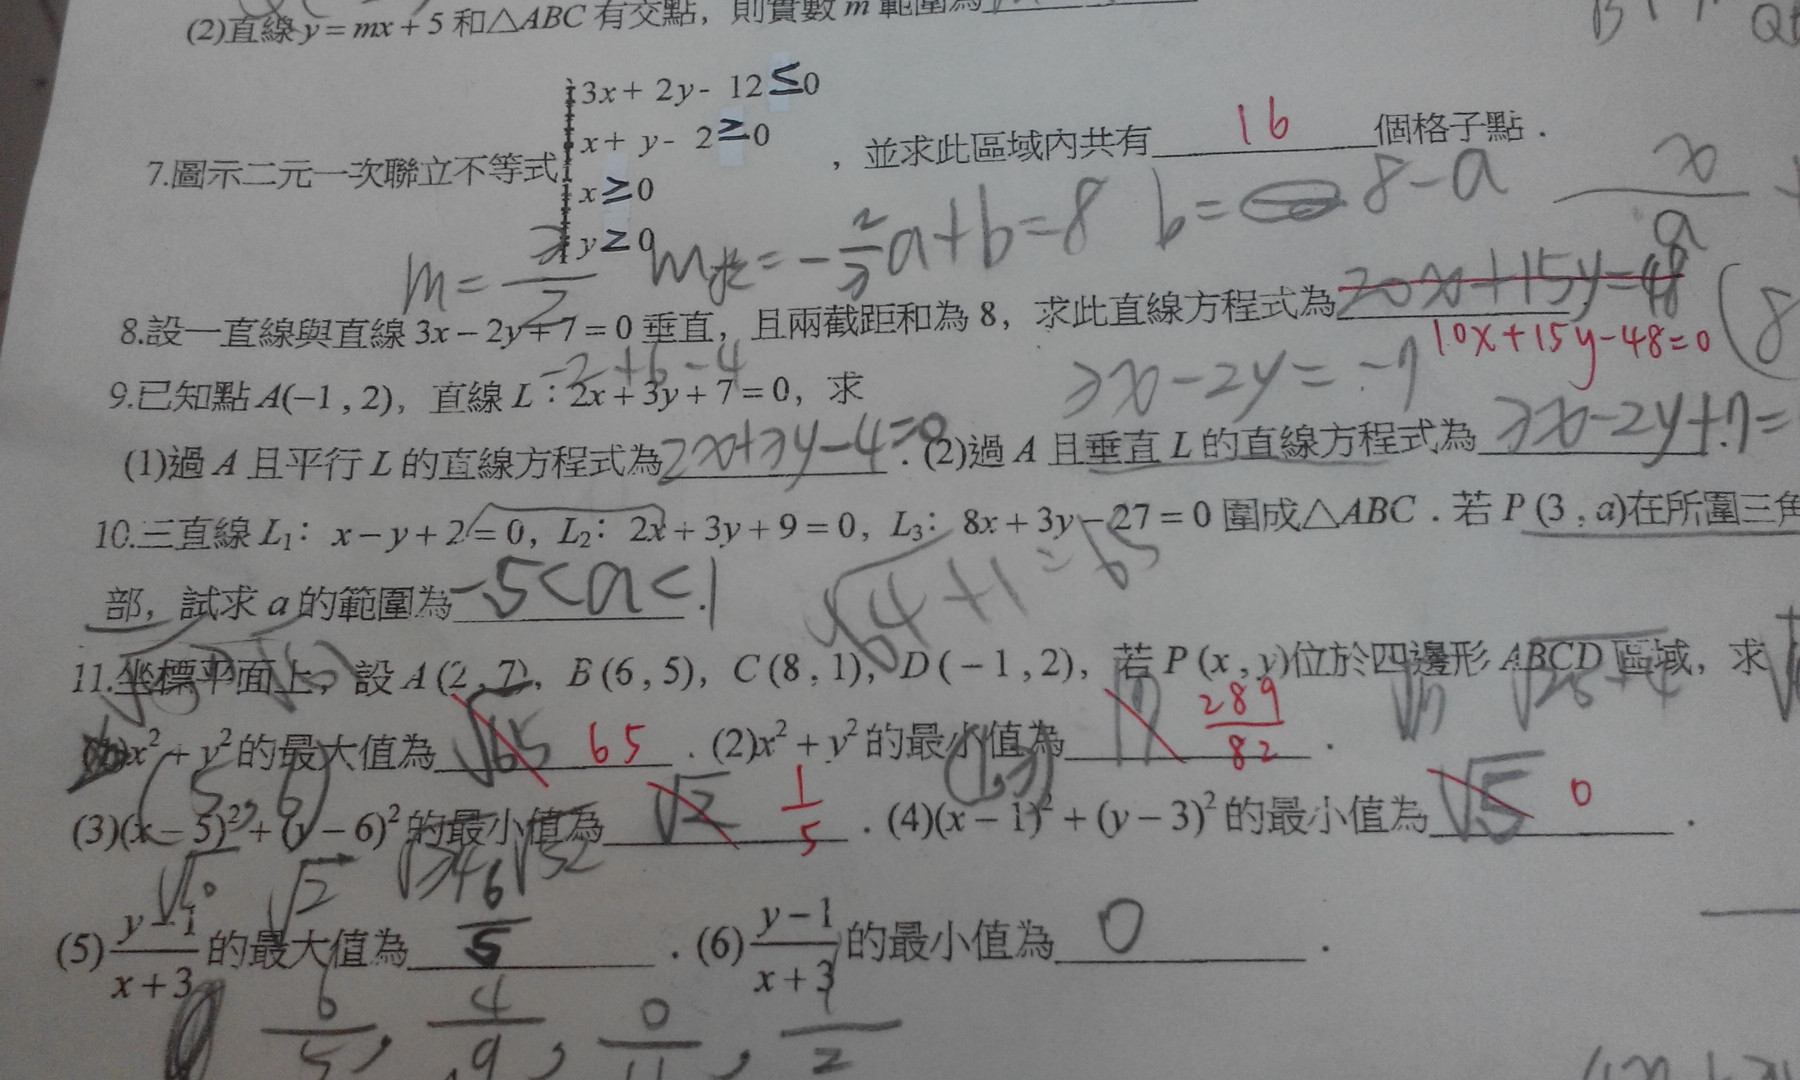 (2)直線 y = mx + 5 和△ABC 有交點，則實數 m 範圍為
3x + 2y - 12 ≤ 0
x + y - 2 ≥ 0
7.圖示二元一次聯立不等式 ，並求此區域內共有 16 個格子點．
x ≥ 0
y ≥ 0
b = 8 - a
8.設一直線與直線 3x − 2y + 7 = 0 垂直，且兩截距和為 8，求此直線方程式為 20x+15y=48
10x+15y-48=0
-2+6-4
3x-2y=-7
9.已知點 A(−1 , 2)，直線 L：2x + 3y + 7 = 0，求
(1)過 A 且平行 L 的直線方程式為 2x+3y-4=0 ．(2)過 A 且垂直 L 的直線方程式為 3x-2y+7=
10.三直線 L₁：x − y + 2 = 0，L₂：2x + 3y + 9 = 0，L₃：8x + 3y − 27 = 0 圍成△ABC．若 P (3 , a)在所圍三角
部，試求 a 的範圍為 -5<a<1 ．
√64+1 = 65
11.坐標平面上，設 A (2 , 7)，B (6 , 5)，C (8 , 1)，D ( − 1 , 2)，若 P (x , y)位於四邊形 ABCD 區域，求
x² + y² 的最大值為 √65 65 ．(2)x² + y² 的最小值為 17 289/82 ．
(5,6) (1,3)
(3)(x − 5)² + (y − 6)² 的最小值為 √2 1/5 ．(4)(x − 1)² + (y − 3)² 的最小值為 √5 0 ．
√10 √2 √34 √32
(5) y − 1 / x + 3 的最大值為 6/5 ．(6) y − 1 / x + 3 的最小值為 0 ．
6/5, 4/9, 0/11, 1/2